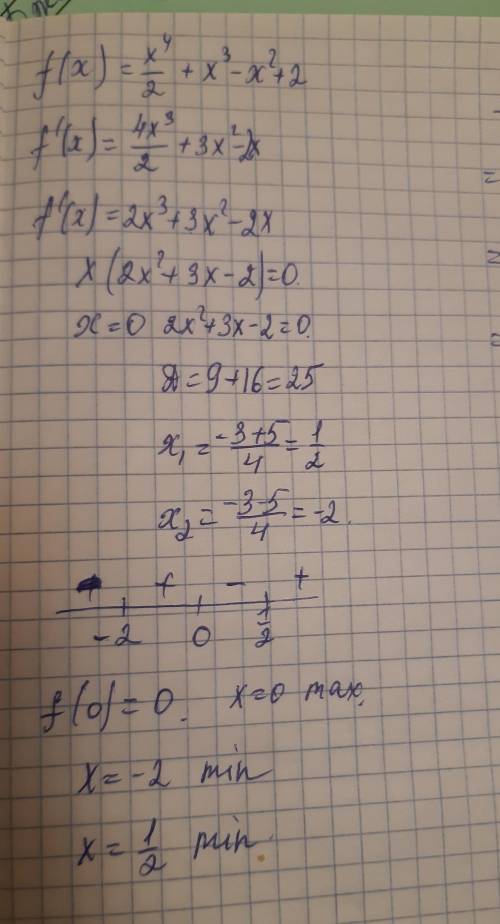 f(x) = x⁴/2 + x³ - x² + 2
f'(x) = 4x³/2 + 3x² - 2x
f'(x) = 2x³ + 3x² - 2x
x(2x² + 3x - 2) = 0.
x = 0 2x² + 3x - 2 = 0.
D = 9 + 16 = 25
x₁ = -3+5/4 = 1/2
x₂ = -3-5/4 = -2.
+ - +
-2 0 1/2
f(0) = 0. x = 0 max.
x = -2 min
x = 1/2 min.